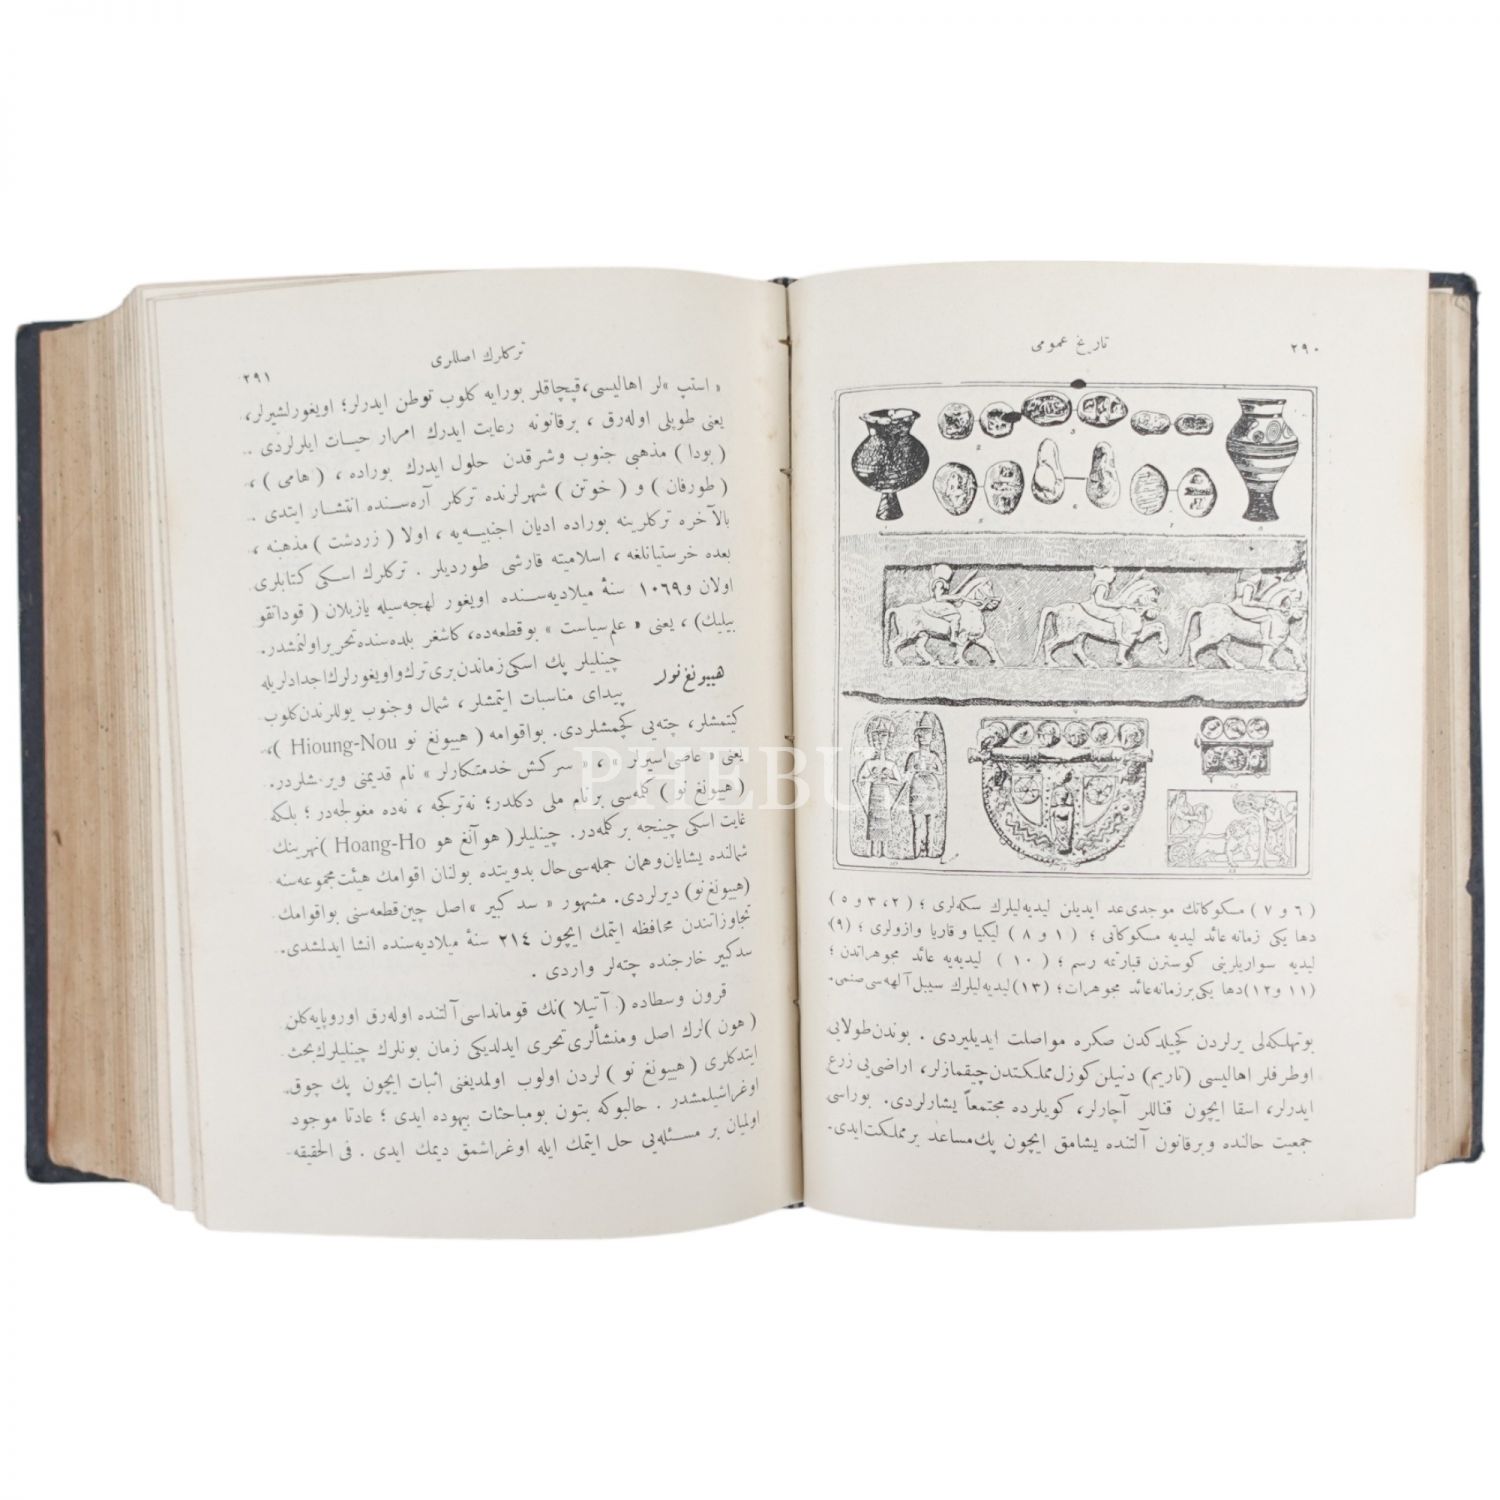 ٢٩٠
تاريخ عمومى
(٦ و ٧) مسكوكاتك موجدى عد ايديلن ليديه ليلرك سكه لرى ؛ (٢، ٣ و ٥)
دها يكى زمانه عائد ليديه مسكوكاتى ؛ (١ و ٨) ليكيا و قاريا وازولرى ؛ (٩)
ليديه سواريلرينى كوسترن قبارتمه رسم ؛ (١٠) ليديه يه عائد مجوهراتدن ؛
(١١ و ١٢) دها يكى بر زمانه عائد مجوهرات ؛ (١٣) ليديه ليلرك سيبل آلهه سى صنمى.
بو تهلكه لى يرلردن كچيلدكدن صكره مواصلت ايديليردى . بوندن طولايى
او طرفلر اهاليسى (تاريم) دنيلن كوزل مملكتدن چيقمازلر، اراضى يى زرع
ايدرلر، اسقا ايچون قناللر آچارلر، كويلرده مجتمعاً يشارلردى. بوراسى
جمعيت حالنده و بر قانون آلتنده يشامق ايچون پك مساعد بر مملكت ايدى.
تركلرك اصللرى
٢٩١
« استپ » لر اهاليسى، قپچاقلر بورايه كلوب توطن ايدرلر؛ اويغورلشيرلر،
يعنى طوپلى اوله رق ، بر قانونه رعايت ايدرك امرار حيات ايلرلردى .
( بودا ) مذهبى جنوب و شرقدن حلول ايدرك بوراده ، ( هامى ) ،
( طورفان ) و ( خوتن ) شهرلرنده تركلر آره سنده انتشار ايتدى .
بالآخره تركلرينه بوراده اديان اجنبيه يه ، اولا ( زردشت ) مذهبنه ،
بعده خرستيانلغه ، اسلاميته قارشى طورديلر . تركلرك اسكى كتابلرى
اولان و ١٠٦٩ سنهٔ ميلاديه سنده اويغور لهجه سيله يازيلان ( قوداتقو
بيليك ) ، يعنى « علم سياست » بو قطعه ده، كاشغر بلده سنده تحرير اولنمشدر.
هييونغ نولر
چينليلر پك اسكى زماندن برى ترك و اويغورلرك اجداديله
پيداى مناسبات ايتمشلر ، شمال و جنوب يوللرندن كلوب
كيتمشلر، چته يى كچمشلردى. بو اقوامه ( هييونغ نو Hioung-Nou )،
يعنى « عاصى اسيرلر » ، « سركش خدمتكارلر » نام قديمنى ويرمشلردر.
( هييونغ نو ) كله سى بر نام ملى دكلدر؛ نه تركجه ، نه ده مغولجه در ؛ بلكه
غايت اسكى چينجه بر كلمه در. چينليلر ( هوآنغ هو Hoang-Ho ) نهرينك
شمالنده يشايان و همان جمله سى حال بدويتده بولنان اقوامك هيئت مجموعه سنه
(هييونغ نو) ديرلردى. مشهور « سد كبير » اصل چين قطعه سنى بو اقوامك
تجاوزاتندن محافظه ايتمك ايچون ٢١٤ سنهٔ ميلاديه سنده انشا ايدلمشدى.
سد كبير خارجنده چته لر واردى .
قرون وسطاده ( آتيلا ) نك قومانداسى آلتنده اوله رق اوروپايه كلن
( هون ) لرك اصل و منشألرى تحرى ايدلديكى زمان بونلرك چينليلرك بحث
ايتدكلرى ( هييونغ نو ) لردن اولوب اولمديغنى اثبات ايچون پك چوق
اوغراشيلمشدر . حالبوكه بتون بو مباحثات بيهوده ايدى ؛ عادتا موجود
اولميان بر مسئله يى حل ايتمك ايله اوغراشمق ديمك ايدى . فى الحقيقه
PHEBUS